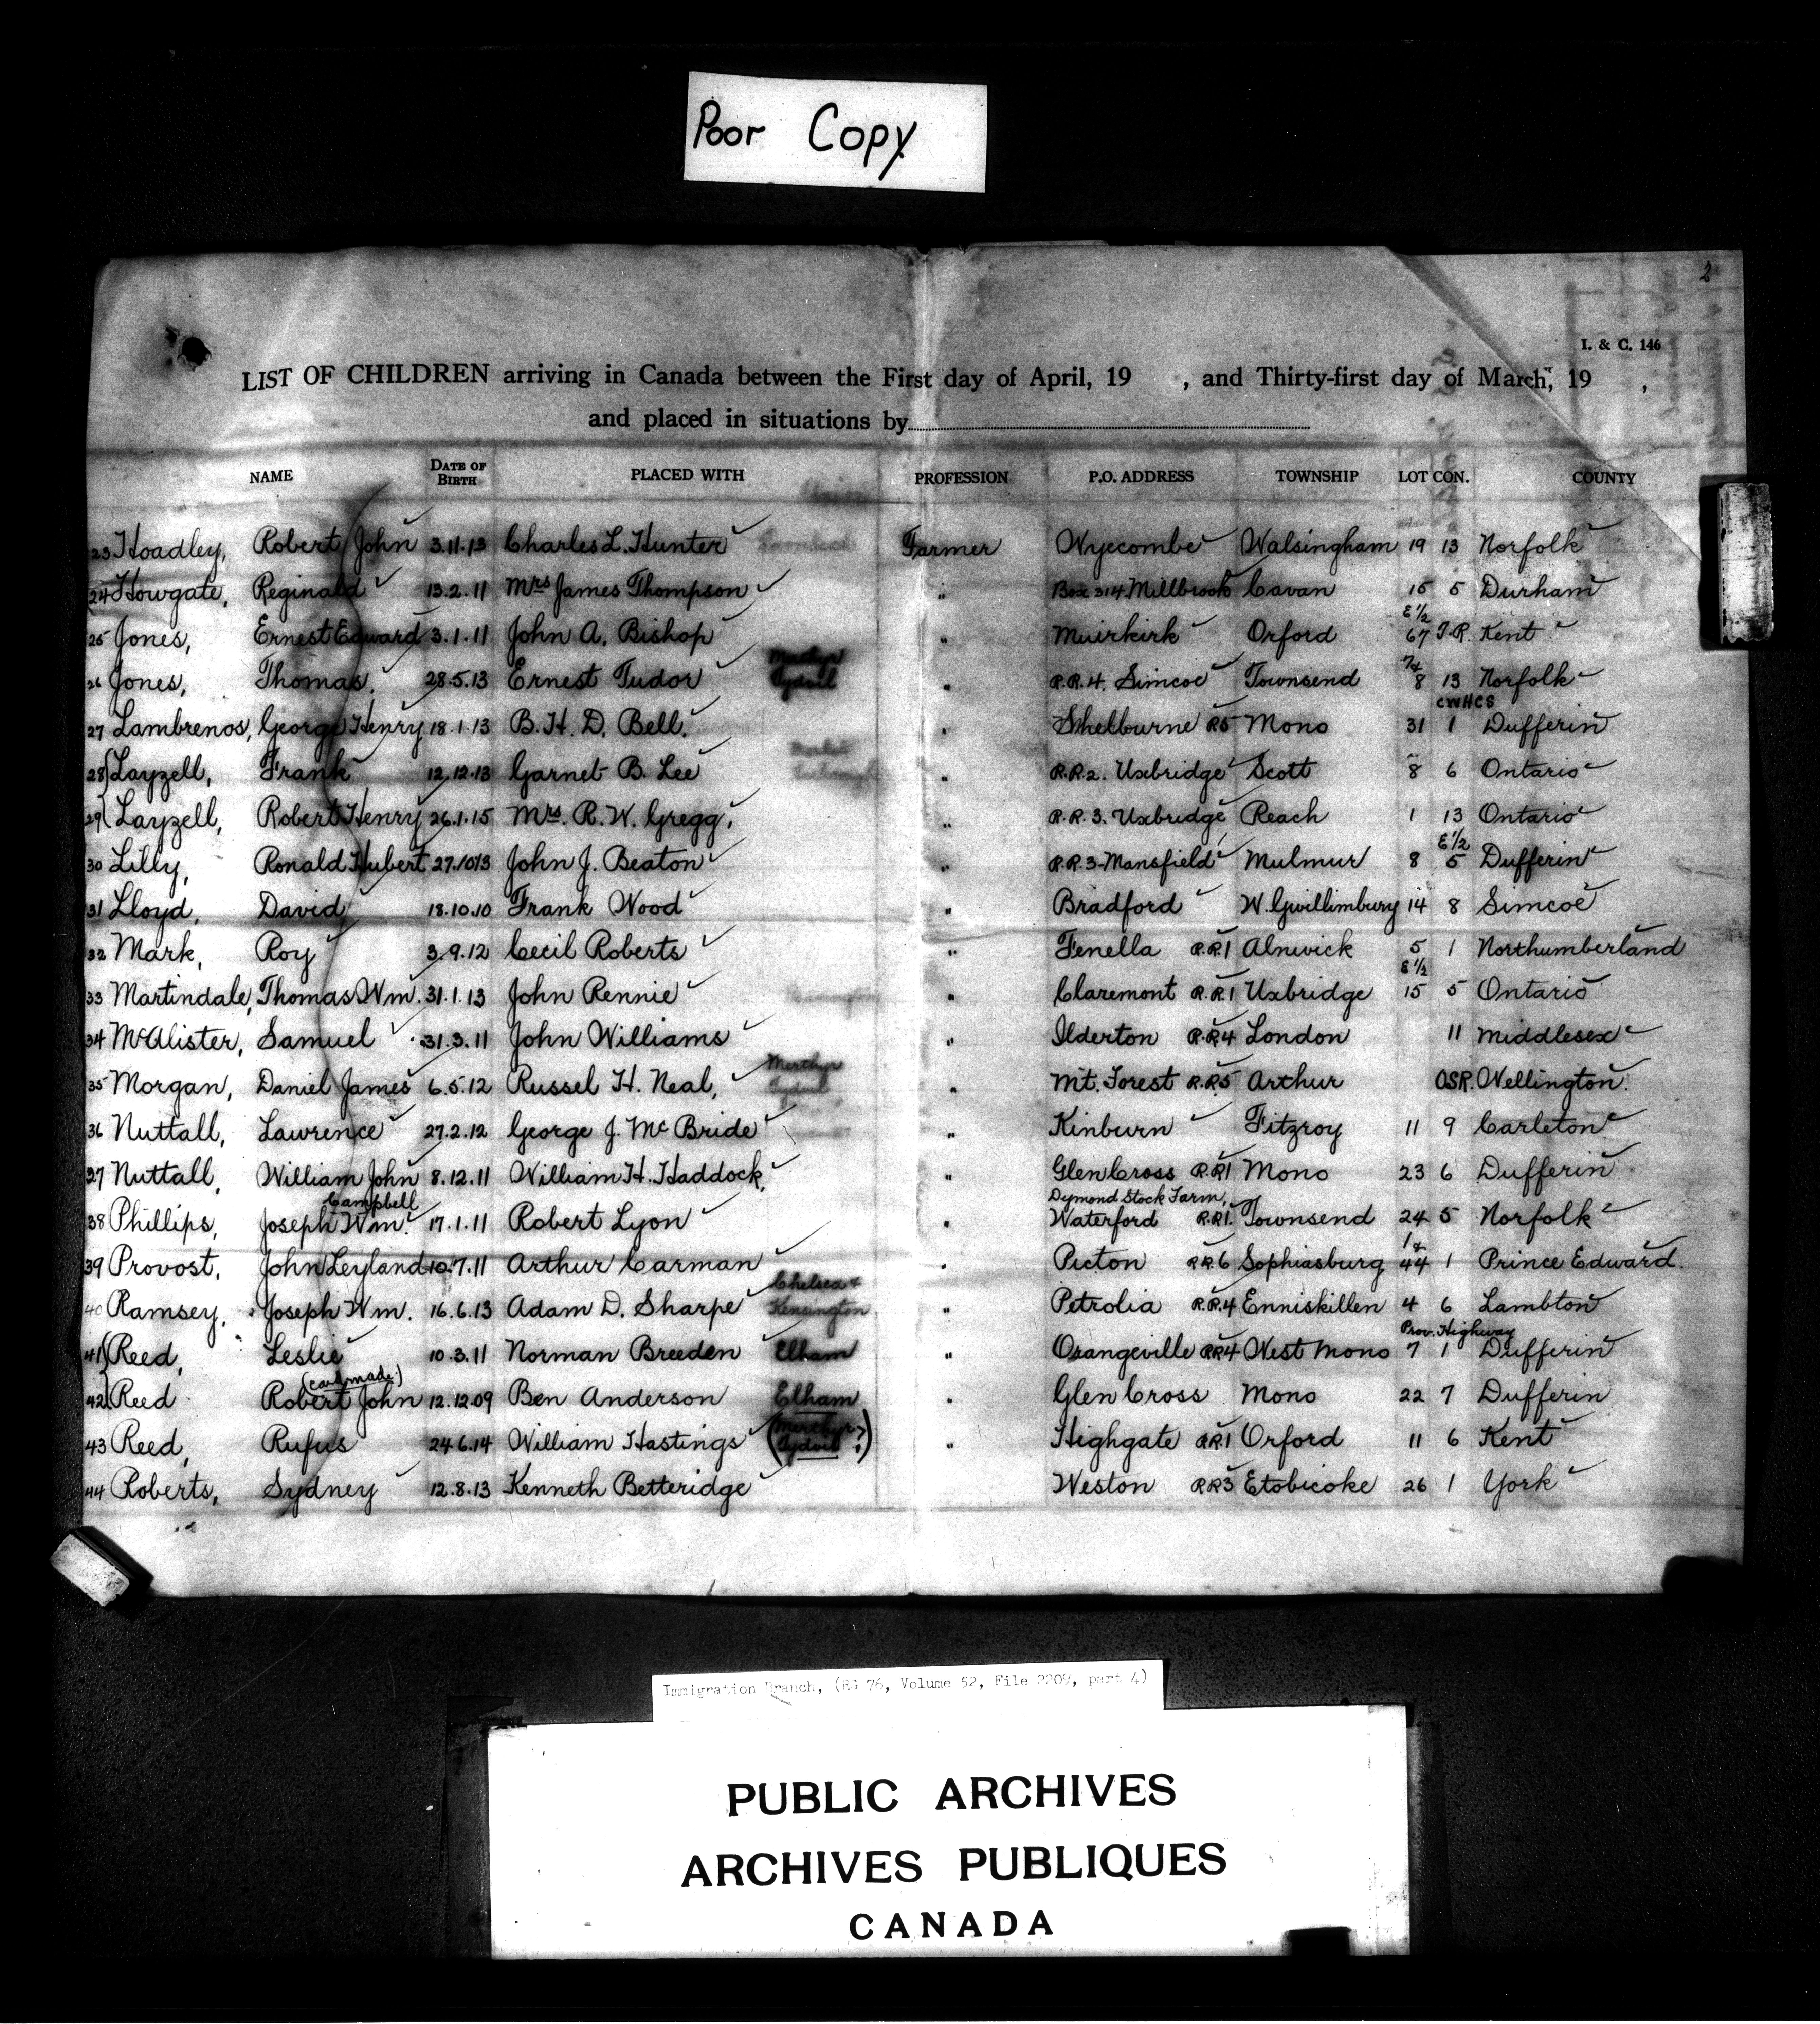 Poor Copy
2
I. & C. 146
LIST OF CHILDREN arriving in Canada between the First day of April, 19 , and Thirty-first day of March, 19 ,
and placed in situations by
NAME DATE OF BIRTH PLACED WITH PROFESSION P.O. ADDRESS TOWNSHIP LOT CON. COUNTY
23 Hoadley, Robert John 3.11.13 Charles L. Hunter Farmer Wyecombe Walsingham 19 13 Norfolk
24 Howgate, Reginald 13.2.11 Mrs James Thompson " Box 314 Millbrook Cavan 15 5 Durham
25 Jones, Ernest Edward 3.1.11 John A. Bishop " Muirkirk Orford E 1/2 67 T.R. Kent
26 Jones, Thomas. 28.5.13 Ernest Tudor Merthyr Tydvil " R.R.4. Simcoe Townsend 7& 8 13 Norfolk
27 Lambrenos, George Henry 18.1.13 B.H.D. Bell. " Shelburne R5 Mono 31 CWHCS 1 Dufferin
28 Layzell, Frank 12.12.13 Garnet B. Lee " R.R.2. Uxbridge Scott 8 6 Ontario
29 Layzell, Robert Henry 26.1.15 Mrs. R.W. Gregg. " R.R.3. Uxbridge Reach 1 13 Ontario
30 Lilly, Ronald Hubert 27.10.13 John J. Beaton " R.R.3-Mansfield Mulmur 8 E 1/2 5 Dufferin
31 Lloyd, David 18.10.10 Frank Wood " Bradford W. Gwillimbury 14 8 Simcoe
32 Mark, Roy 3.9.12 Cecil Roberts " Fenella R.R.1 Alnwick 5 1 Northumberland
33 Martindale, Thomas Wm. 31.1.13 John Rennie " Claremont R.R.1 Uxbridge E 1/2 15 5 Ontario
34 McAlister, Samuel 31.3.11 John Williams " Ilderton R.R.4 London 11 Middlesex
35 Morgan, Daniel James 6.5.12 Russel H. Neal, Merthyr Tydvil " Mt. Forest R.R.5 Arthur OSR. Wellington.
36 Nuttall, Lawrence 27.2.12 George J. McBride " Kinburn Fitzroy 11 9 Carleton
37 Nuttall, William John 8.12.11 William H. Haddock, " Glen Cross R.R.1 Mono 23 6 Dufferin
38 Phillips, Joseph Wm. Campbell 17.1.11 Robert Lyon " Dymond Stock Farm, Waterford R.R.1. Townsend 24 5 Norfolk
39 Provost, John Leyland 10.7.11 Arthur Carman " Picton R.R.6 Sophiasburg 1& 44 1 Prince Edward.
40 Ramsey, Joseph Wm. 16.6.13 Adam D. Sharpe Chelsea & Kensington " Petrolia R.R.4 Enniskillen 4 6 Lambton
41 Reed, Leslie 10.3.11 Norman Breeden Elham " Orangeville R.R.4 West Mono 7 Prov. Highway 1 Dufferin
42 Reed Robert John (card made.) 12.12.09 Ben Anderson Elham " Glen Cross Mono 22 7 Dufferin
43 Reed, Rufus 24.6.14 William Hastings (Merthyr Tydvil ?) " Highgate R.R.1 Orford 11 6 Kent
44 Roberts, Sydney 12.8.13 Kenneth Betteridge Weston R.R.3 Etobicoke 26 1 York
Immigration Branch, (RG 76, Volume 52, File 2209, part 4)
PUBLIC ARCHIVES
ARCHIVES PUBLIQUES
CANADA